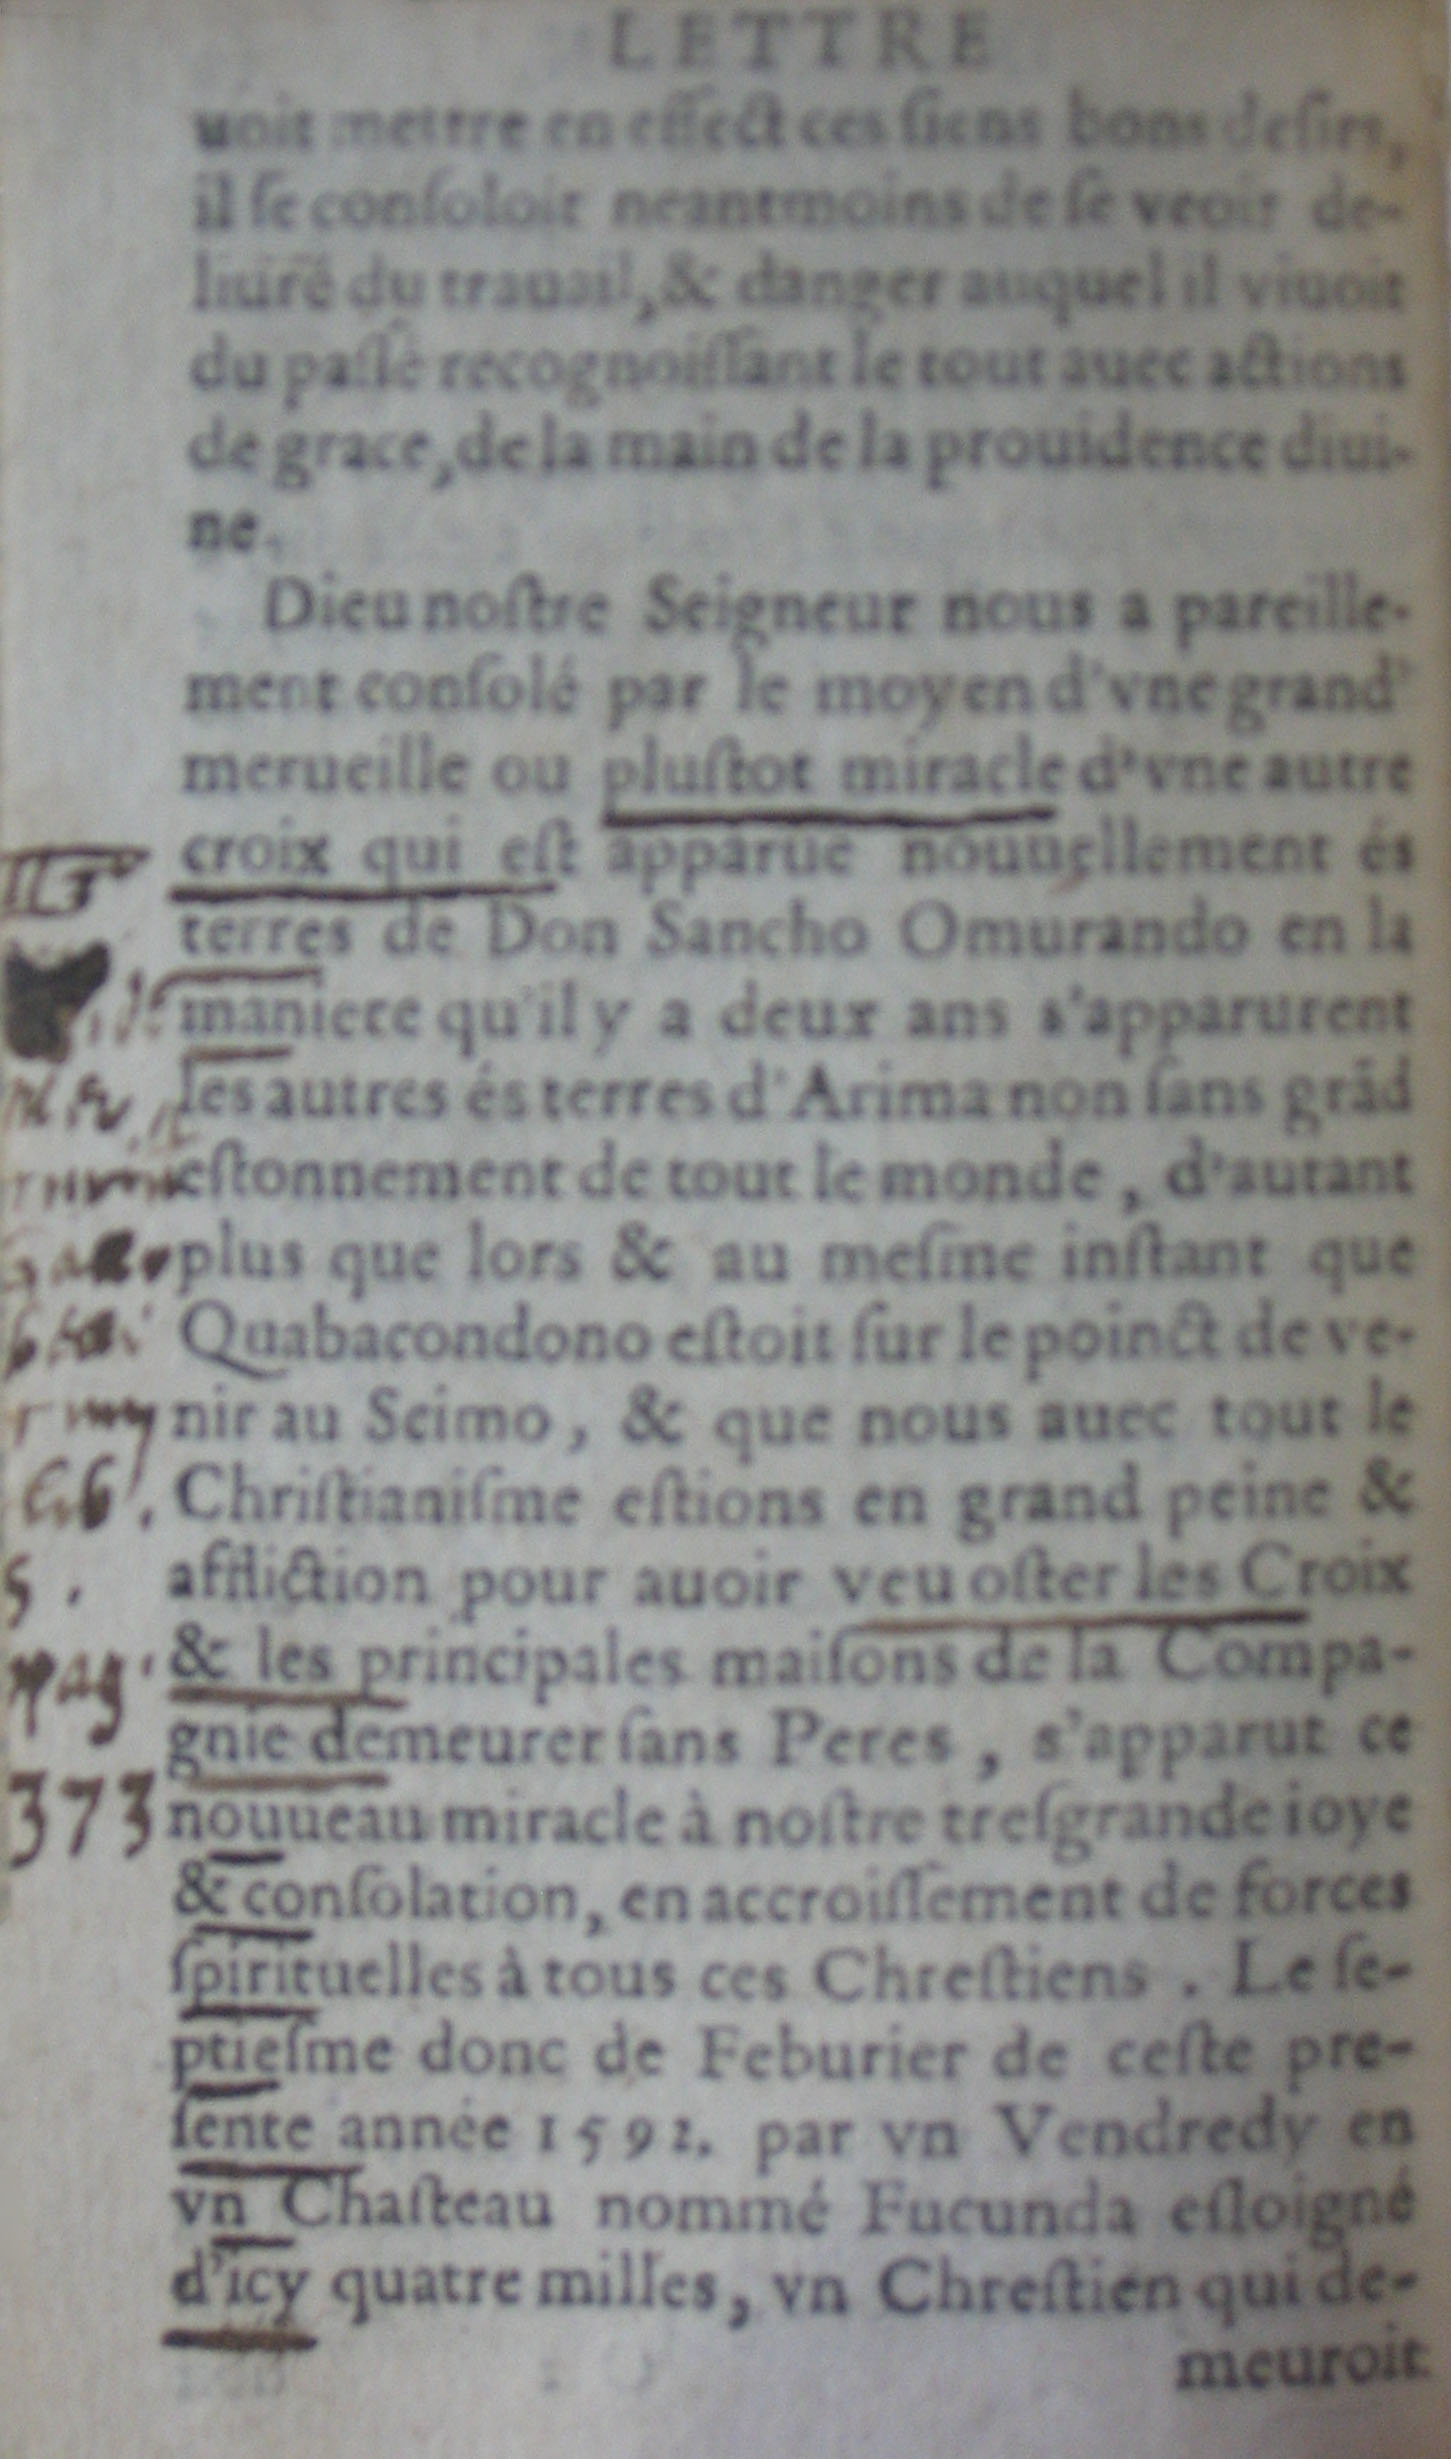 LETTRE
uoit mettre en effect ces ſiens bons deſirs,
il ſe conſoloit neantmoins de ſe veoir de-
liuré du trauail, & danger auquel il viuoit
du paſſé recognoiſſant le tout auec actions
de grace, de la main de la prouidence diui-
ne.
Dieu noſtre Seigneur nous a pareille-
ment conſolé par le moyen d'vne grand'
merueille ou pluſtot miracle d'vne autre
croix qui eſt apparue nouuellement és
terres de Don Sancho Omurando en la
maniere qu'il y a deux ans s'apparurent
les autres és terres d'Arima non ſans grãd
eſtonnement de tout le monde, d'autant
plus que lors & au meſme inſtant que
Quabacondono eſtoit ſur le poinct de ve-
nir au Scimo, & que nous auec tout le
Chriſtianiſme eſtions en grand peine &
affliction pour auoir veu oſter les Croix
& les principales maiſons de la Compa-
gnie demeurer ſans Peres, s'apparut ce
nouueau miracle à noſtre treſgrande ioye
& conſolation, en accroiſſement de forces
ſpirituelles à tous ces Chreſtiens. Le ſe-
ptieſme donc de Feburier de ceſte pre-
ſente année 1592. par vn Vendredy en
vn Chaſteau nommé Fucunda eſloigné
d'icy quatre milles, vn Chreſtien qui de-
meuroit
lib.
5.
pag.
373